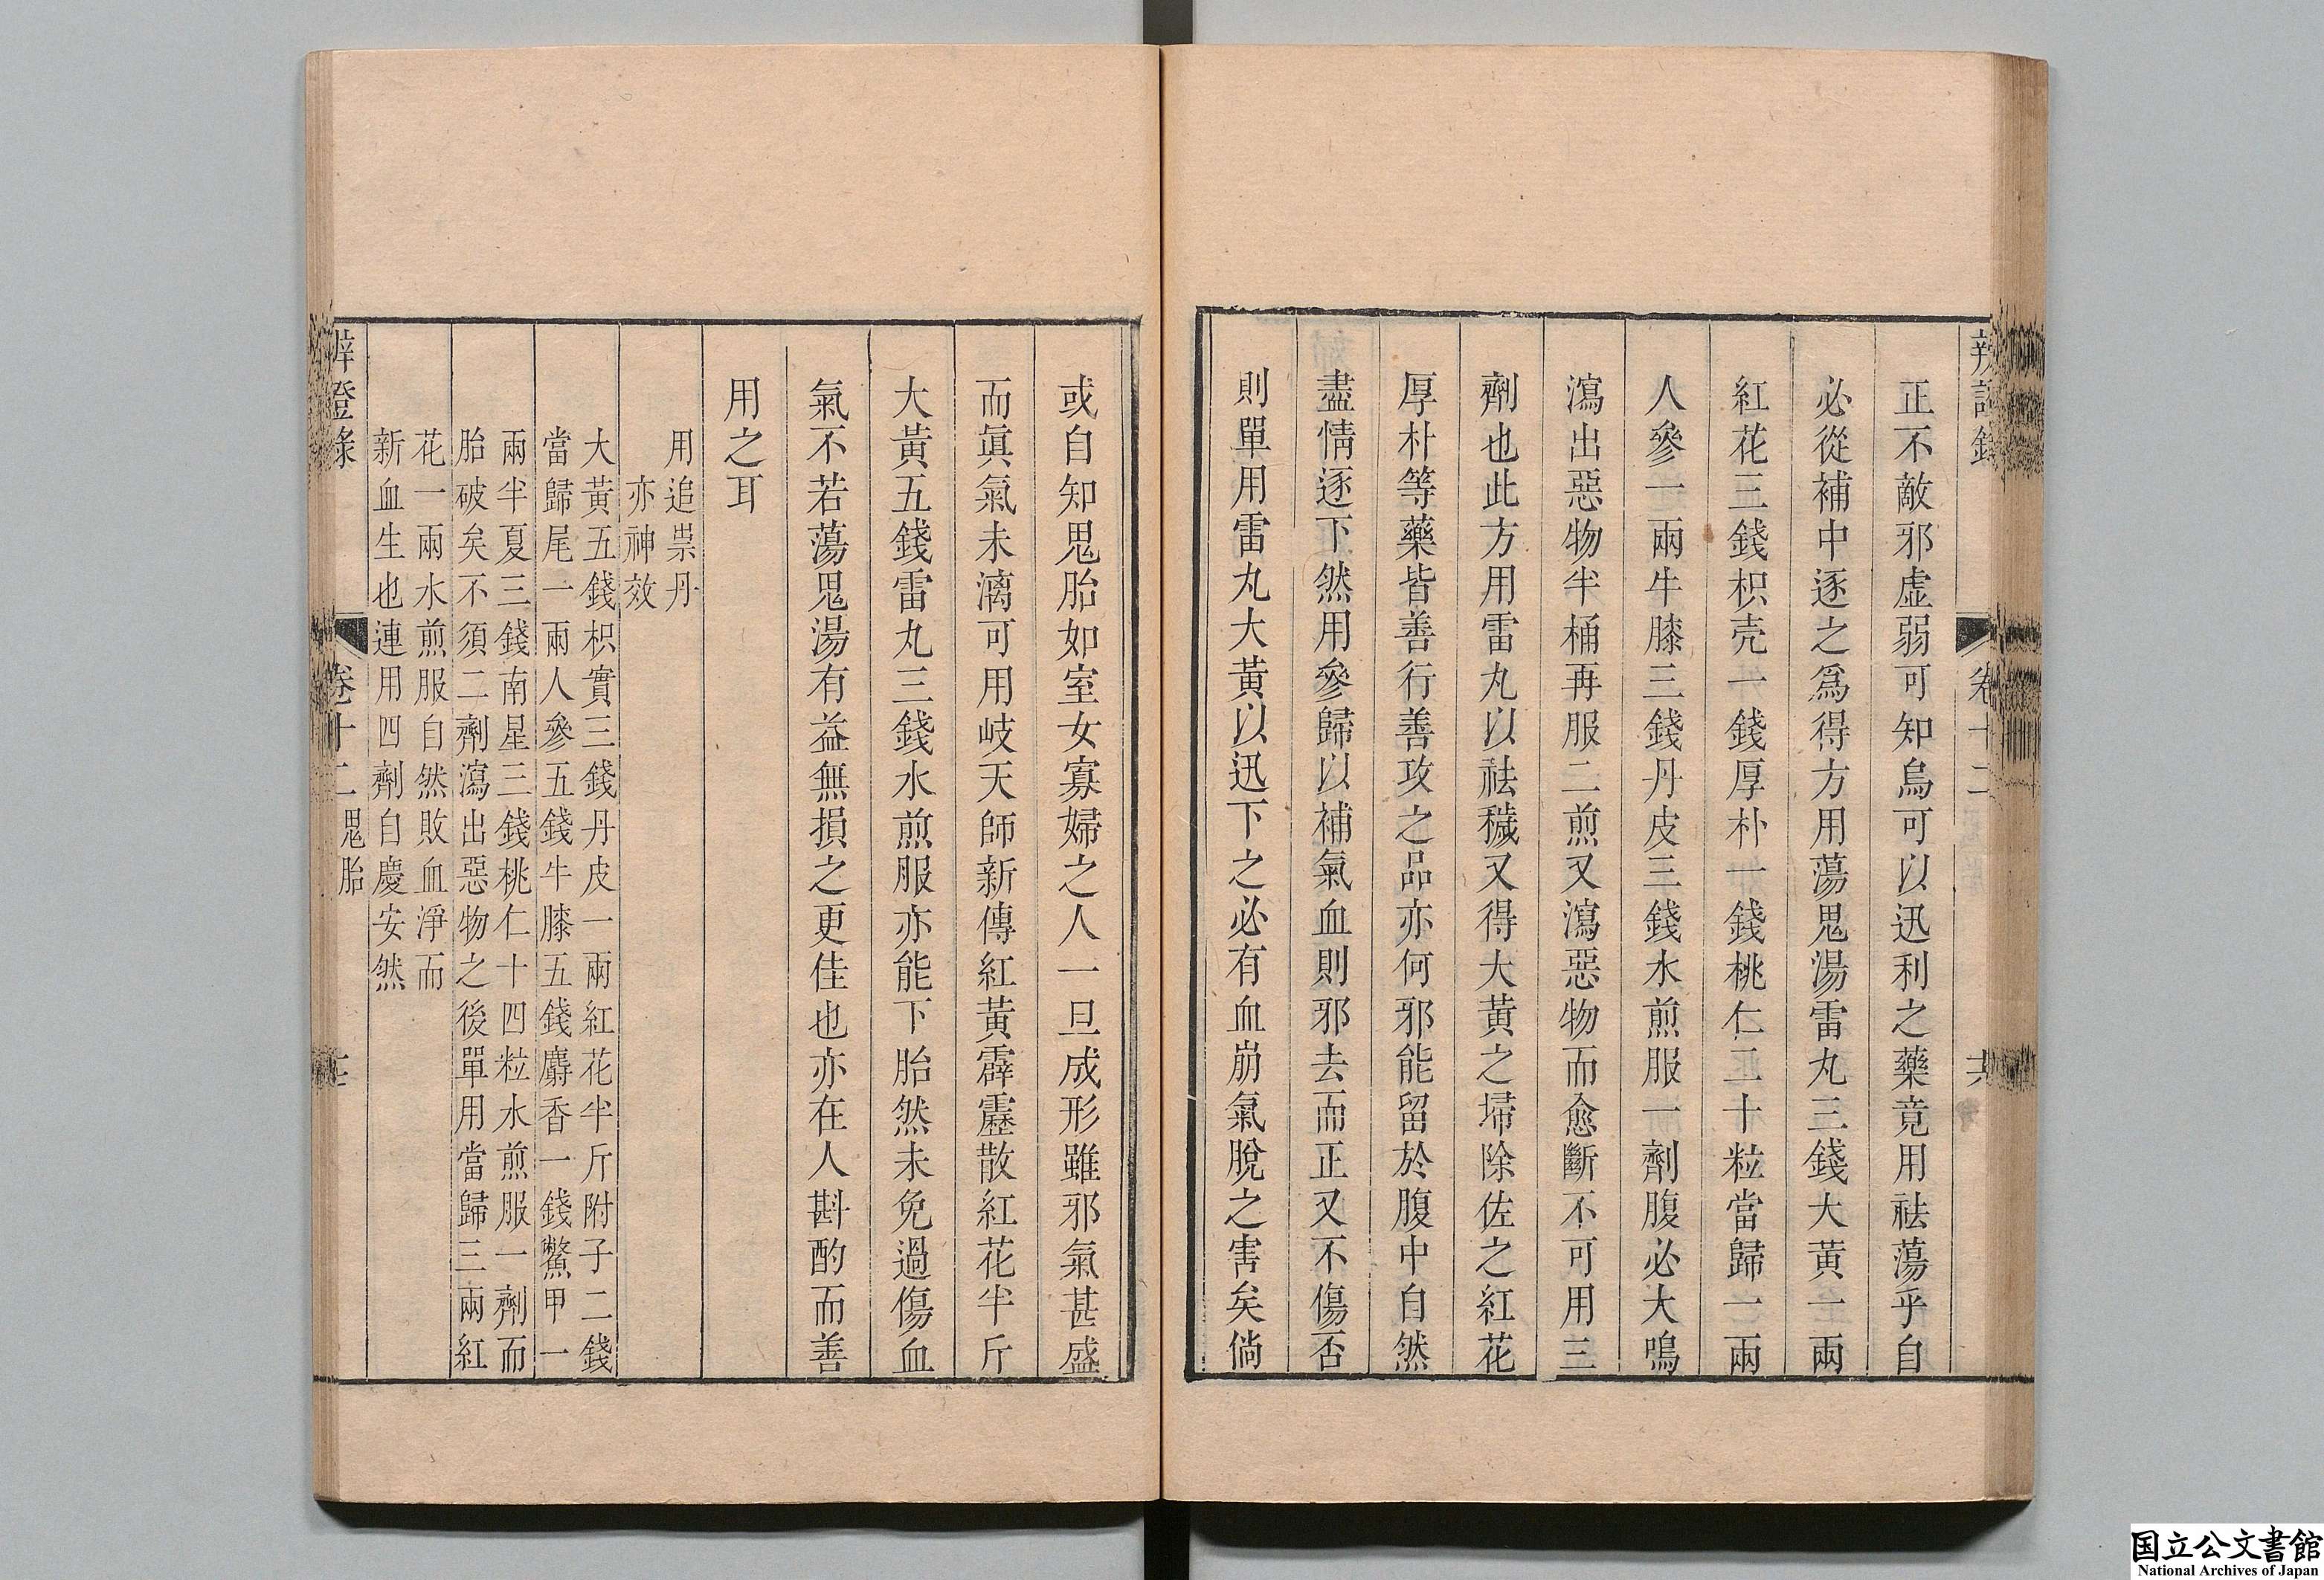 辨證錄 卷十二
正不敵邪虛弱可知烏可以迅利之藥竟用祛蕩乎自
必從補中逐之爲得方用蕩鬼湯雷丸三錢大黃一兩
紅花三錢枳壳一錢厚朴一錢桃仁二十粒當歸一兩
人參一兩牛膝三錢丹皮三錢水煎服一劑腹必大鳴
瀉出惡物半桶再服二煎又瀉惡物而愈斷不可用三
劑也此方用雷丸以祛穢又得大黃之埽除佐之紅花
厚朴等藥皆善行善攻之品亦何邪能留於腹中自然
盡情逐下然用參歸以補氣血則邪去而正又不傷否
則單用雷丸大黃以迅下之必有血崩氣脫之害矣倘
或自知鬼胎如室女寡婦之人一旦成形雖邪氣甚盛
而眞氣未漓可用岐天師新傳紅黃霹靂散紅花半斤
大黃五錢雷丸三錢水煎服亦能下胎然未免過傷血
氣不若蕩鬼湯有益無損之更佳也亦在人斟酌而善
用之耳
用追祟丹
亦神效
大黃五錢枳實三錢丹皮一兩紅花半斤附子二錢
當歸尾一兩人參五錢牛膝五錢麝香一錢鱉甲一
兩半夏三錢南星三錢桃仁十四粒水煎服一劑而
胎破矣不須二劑瀉出惡物之後單用當歸三兩紅
花一兩水煎服自然敗血淨而
新血生也連用四劑自慶安然
辨證錄 卷十二 鬼胎
国立公文書館
National Archives of Japan